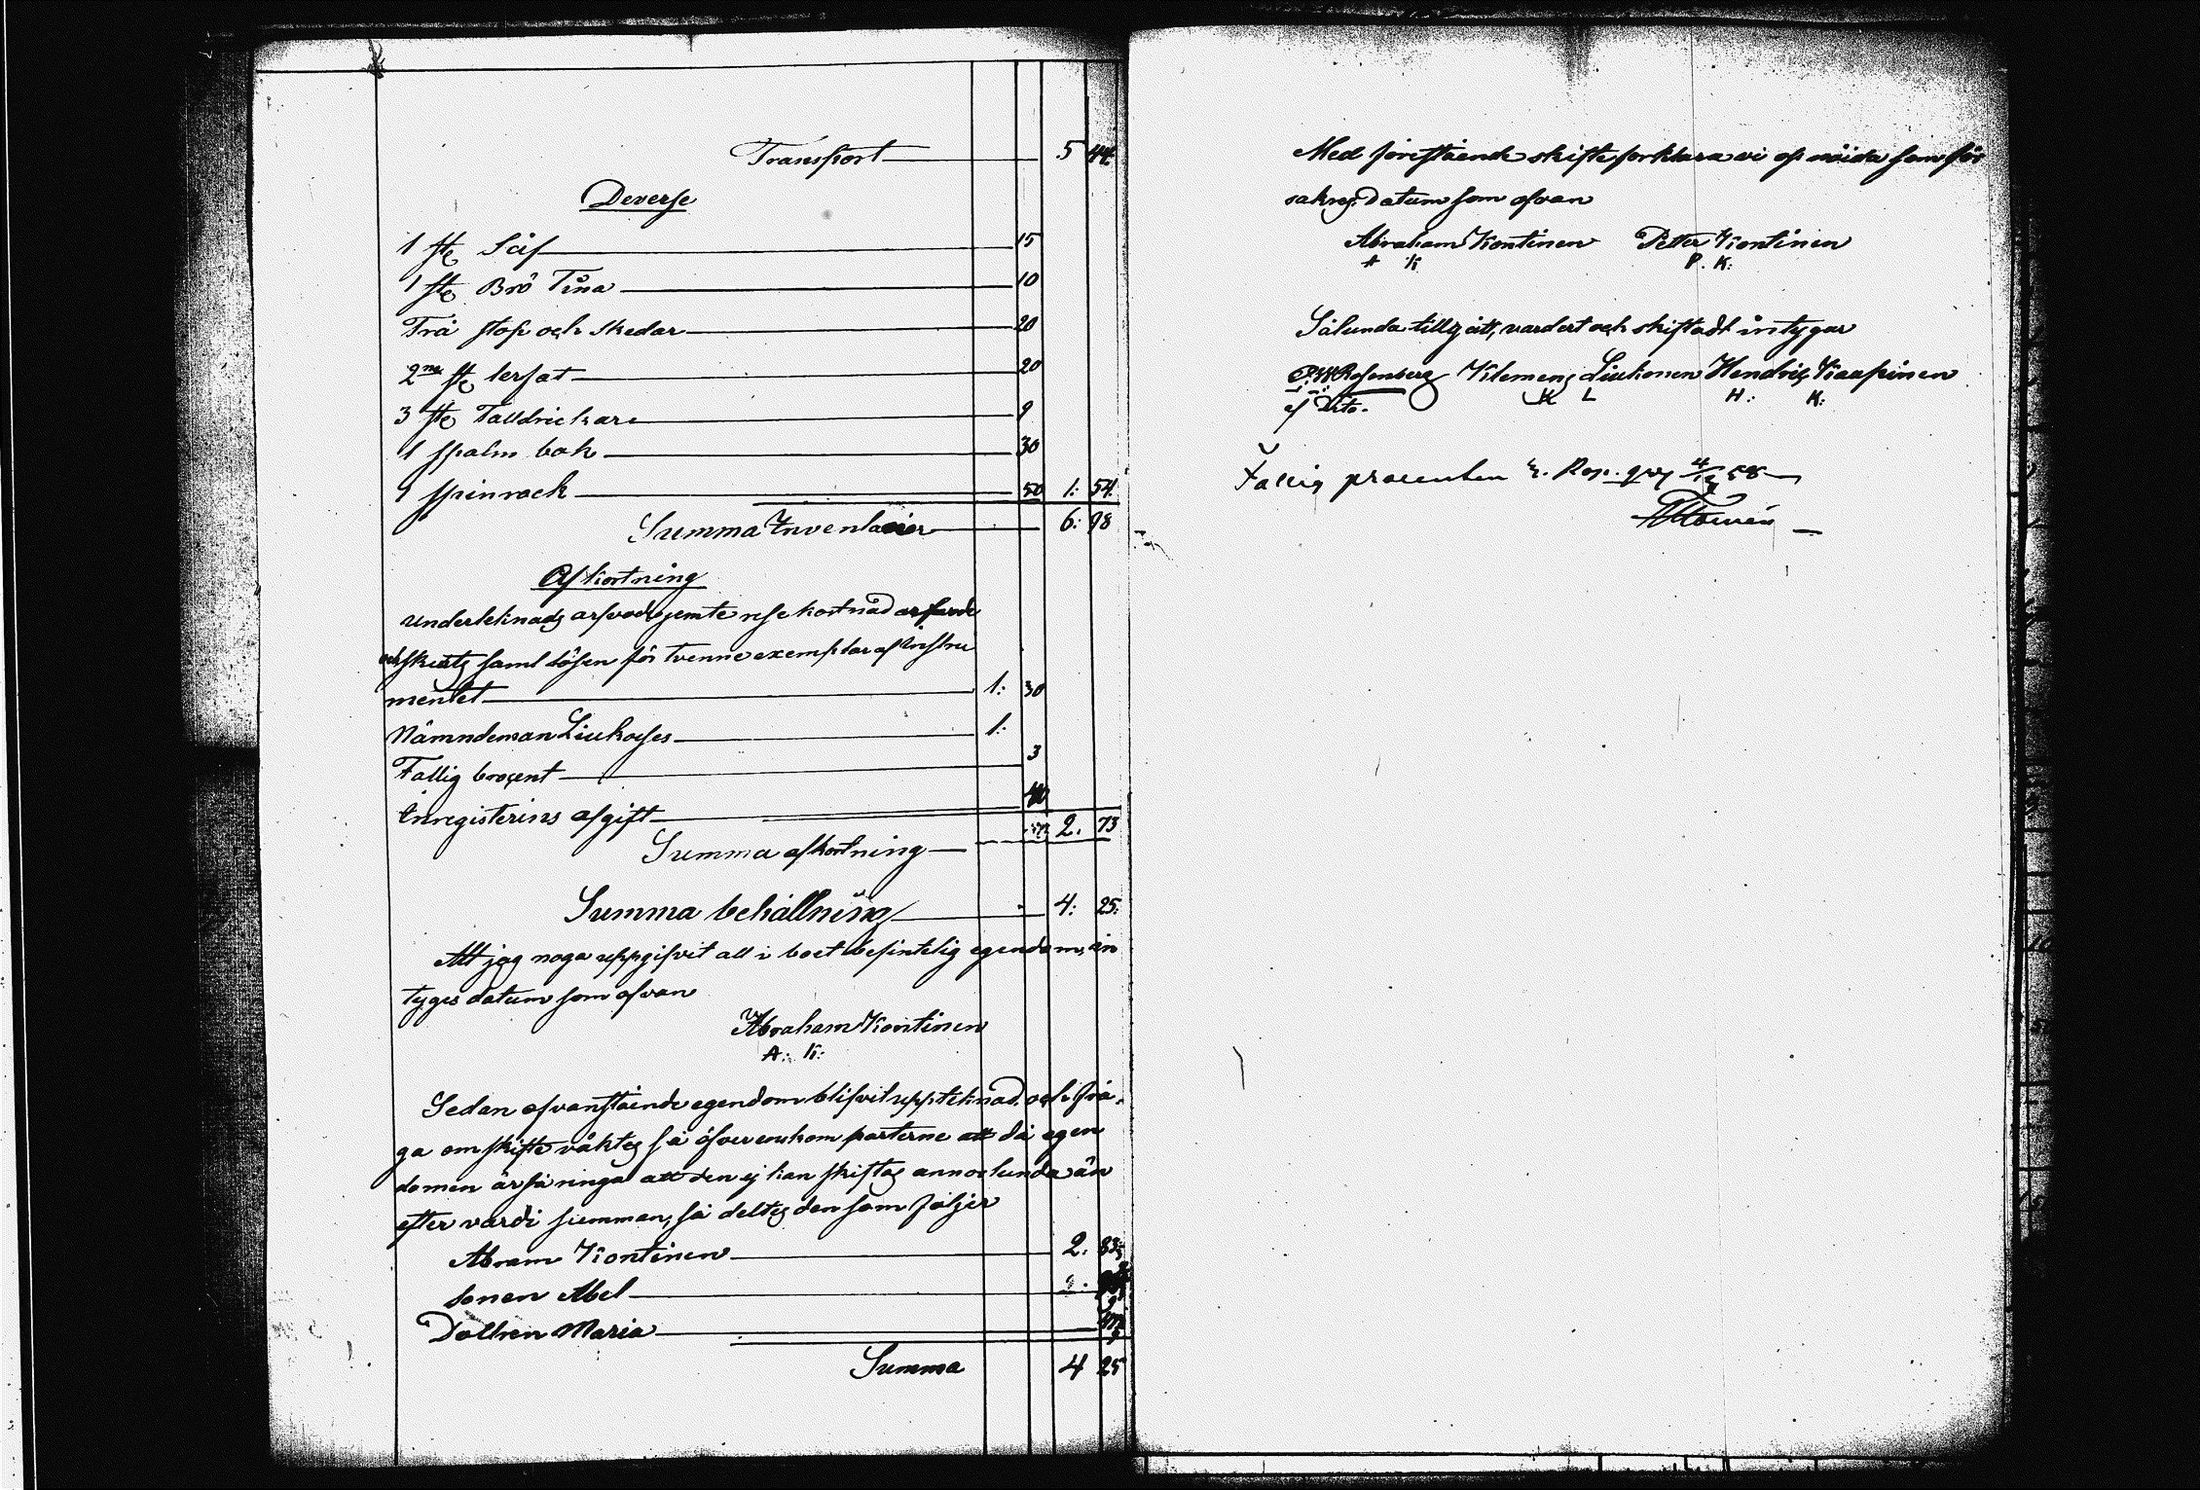 Transport 5 44
Deverse
1 st Såf 15
1 st Brö Tina 10
Trä stop och skedar 20
2ne st lerfat 20
3 st Talldrickar 9
1 spalm bok 30
1 spinrock 50 1: 54
Summa Inventarier 6: 98
Afkortning
underteknads arfvode jemte rese kostnad
och skiutz samt lösen för tvenne exemplar af Instru
mentet 1: 30
Nämndeman 1:
Fallig brocent 3
Inregisterins afgift 40
2. 73
Summa afkortning
Summa behållning 4: 25:
Att jag noga uppgifvit all i boet befintelig egendom, in
tyges datum som ofvan
Abraham Kontinen
A: K:
Sedan ofvanstående egendom blifvit uppteknad och frå-
ga om skifte väktes så öfverenskom parterne att då egen
domen är så ringa att den ej kan skiftas annorlunda än
efter värdi summan, så deltes den som följer
Abram Kontinen 2. 83
sonen Abel
Dottren Maria
Summa 4 25
Med forestående skifte forklara vi os nöida som för
sakras Datum som ofvan
Abraham Kontinen Petter Kontinen
A K P. K:
Sålunda tillgått, vardert och skiftadt intygar
Rosenberg Klemens Liukonen Hendric Kaupinen
K L H: K:
Fallig procenten